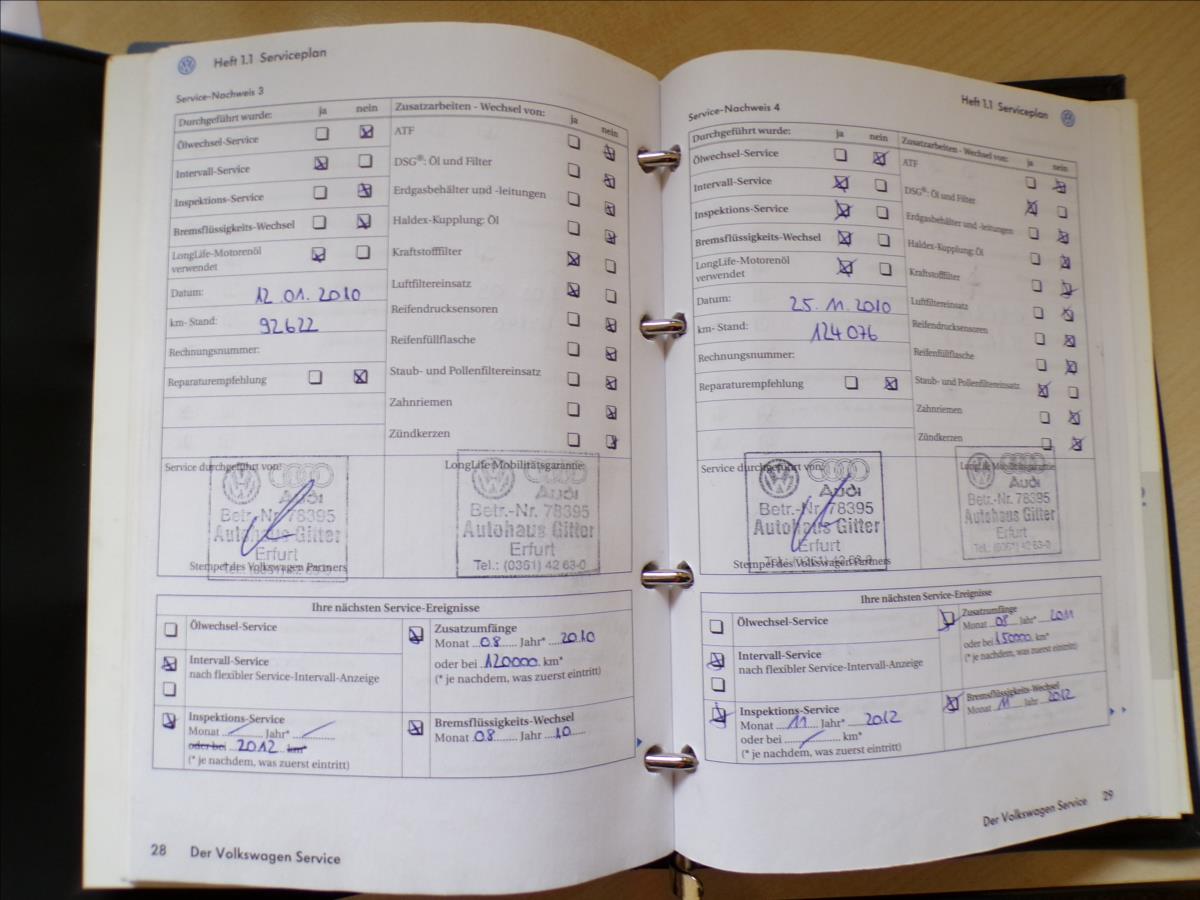 Heft 1.1 Serviceplan
Service-Nachweis 3
Durchgeführt wurde: ja nein
Ölwechsel-Service
Intervall-Service
Inspektions-Service
Bremsflüssigkeits-Wechsel
LongLife-Motorenöl
verwendet
Datum: 12.01.2010
km- Stand: 92622
Rechnungsnummer:
Reparaturempfehlung
Zusatzarbeiten - Wechsel von: ja nein
ATF
DSG®: Öl und Filter
Erdgasbehälter und -leitungen
Haldex-Kupplung: Öl
Kraftstofffilter
Luftfiltereinsatz
Reifendrucksensoren
Reifenfüllflasche
Staub- und Pollenfiltereinsatz
Zahnriemen
Zündkerzen
Service durchgeführt von:
Audi
Betr.-Nr. 78395
Autohaus Gitter
Erfurt
Stempel des Volkswagen Partners
LongLife Mobilitätsgarantie:
Audi
Betr.-Nr. 78395
Autohaus Gitter
Erfurt
Tel.: (0361) 42 63-0
Ihre nächsten Service-Ereignisse
Ölwechsel-Service
Intervall-Service
nach flexibler Service-Intervall-Anzeige
Inspektions-Service
Monat Jahr*
oder bei 2012 km*
(* je nachdem, was zuerst eintritt)
Zusatzumfänge
Monat 08 Jahr* 2010
oder bei 120000 km*
(* je nachdem, was zuerst eintritt)
Bremsflüssigkeits-Wechsel
Monat 08 Jahr 10
28 Der Volkswagen Service
Heft 1.1 Serviceplan
Service-Nachweis 4
Durchgeführt wurde: ja nein
Ölwechsel-Service
Intervall-Service
Inspektions-Service
Bremsflüssigkeits-Wechsel
LongLife-Motorenöl
verwendet
Datum: 25.11.2010
km- Stand: 124076
Rechnungsnummer:
Reparaturempfehlung
Zusatzarbeiten - Wechsel von: ja nein
ATF
DSG®: Öl und Filter
Erdgasbehälter und -leitungen
Haldex-Kupplung: Öl
Kraftstofffilter
Luftfiltereinsatz
Reifendrucksensoren
Reifenfüllflasche
Staub- und Pollenfiltereinsatz
Zahnriemen
Zündkerzen
Service durchgeführt von:
Audi
Betr.-Nr. 78395
Autohaus Gitter
Erfurt
Tel.: (0361) 42 63-0
Stempel des Volkswagen Partners
LongLife Mobilitätsgarantie
Audi
Betr.-Nr. 78395
Autohaus Gitter
Erfurt
Tel.: (0361) 42 63-0
Ihre nächsten Service-Ereignisse
Ölwechsel-Service
Intervall-Service
nach flexibler Service-Intervall-Anzeige
Inspektions-Service
Monat 11 Jahr* 2012
oder bei km*
(* je nachdem, was zuerst eintritt)
Zusatzumfänge
Monat 08 Jahr* 2011
oder bei 150000 km*
(* je nachdem, was zuerst eintritt)
Bremsflüssigkeits-Wechsel
Monat 11 Jahr 2012
Der Volkswagen Service 29